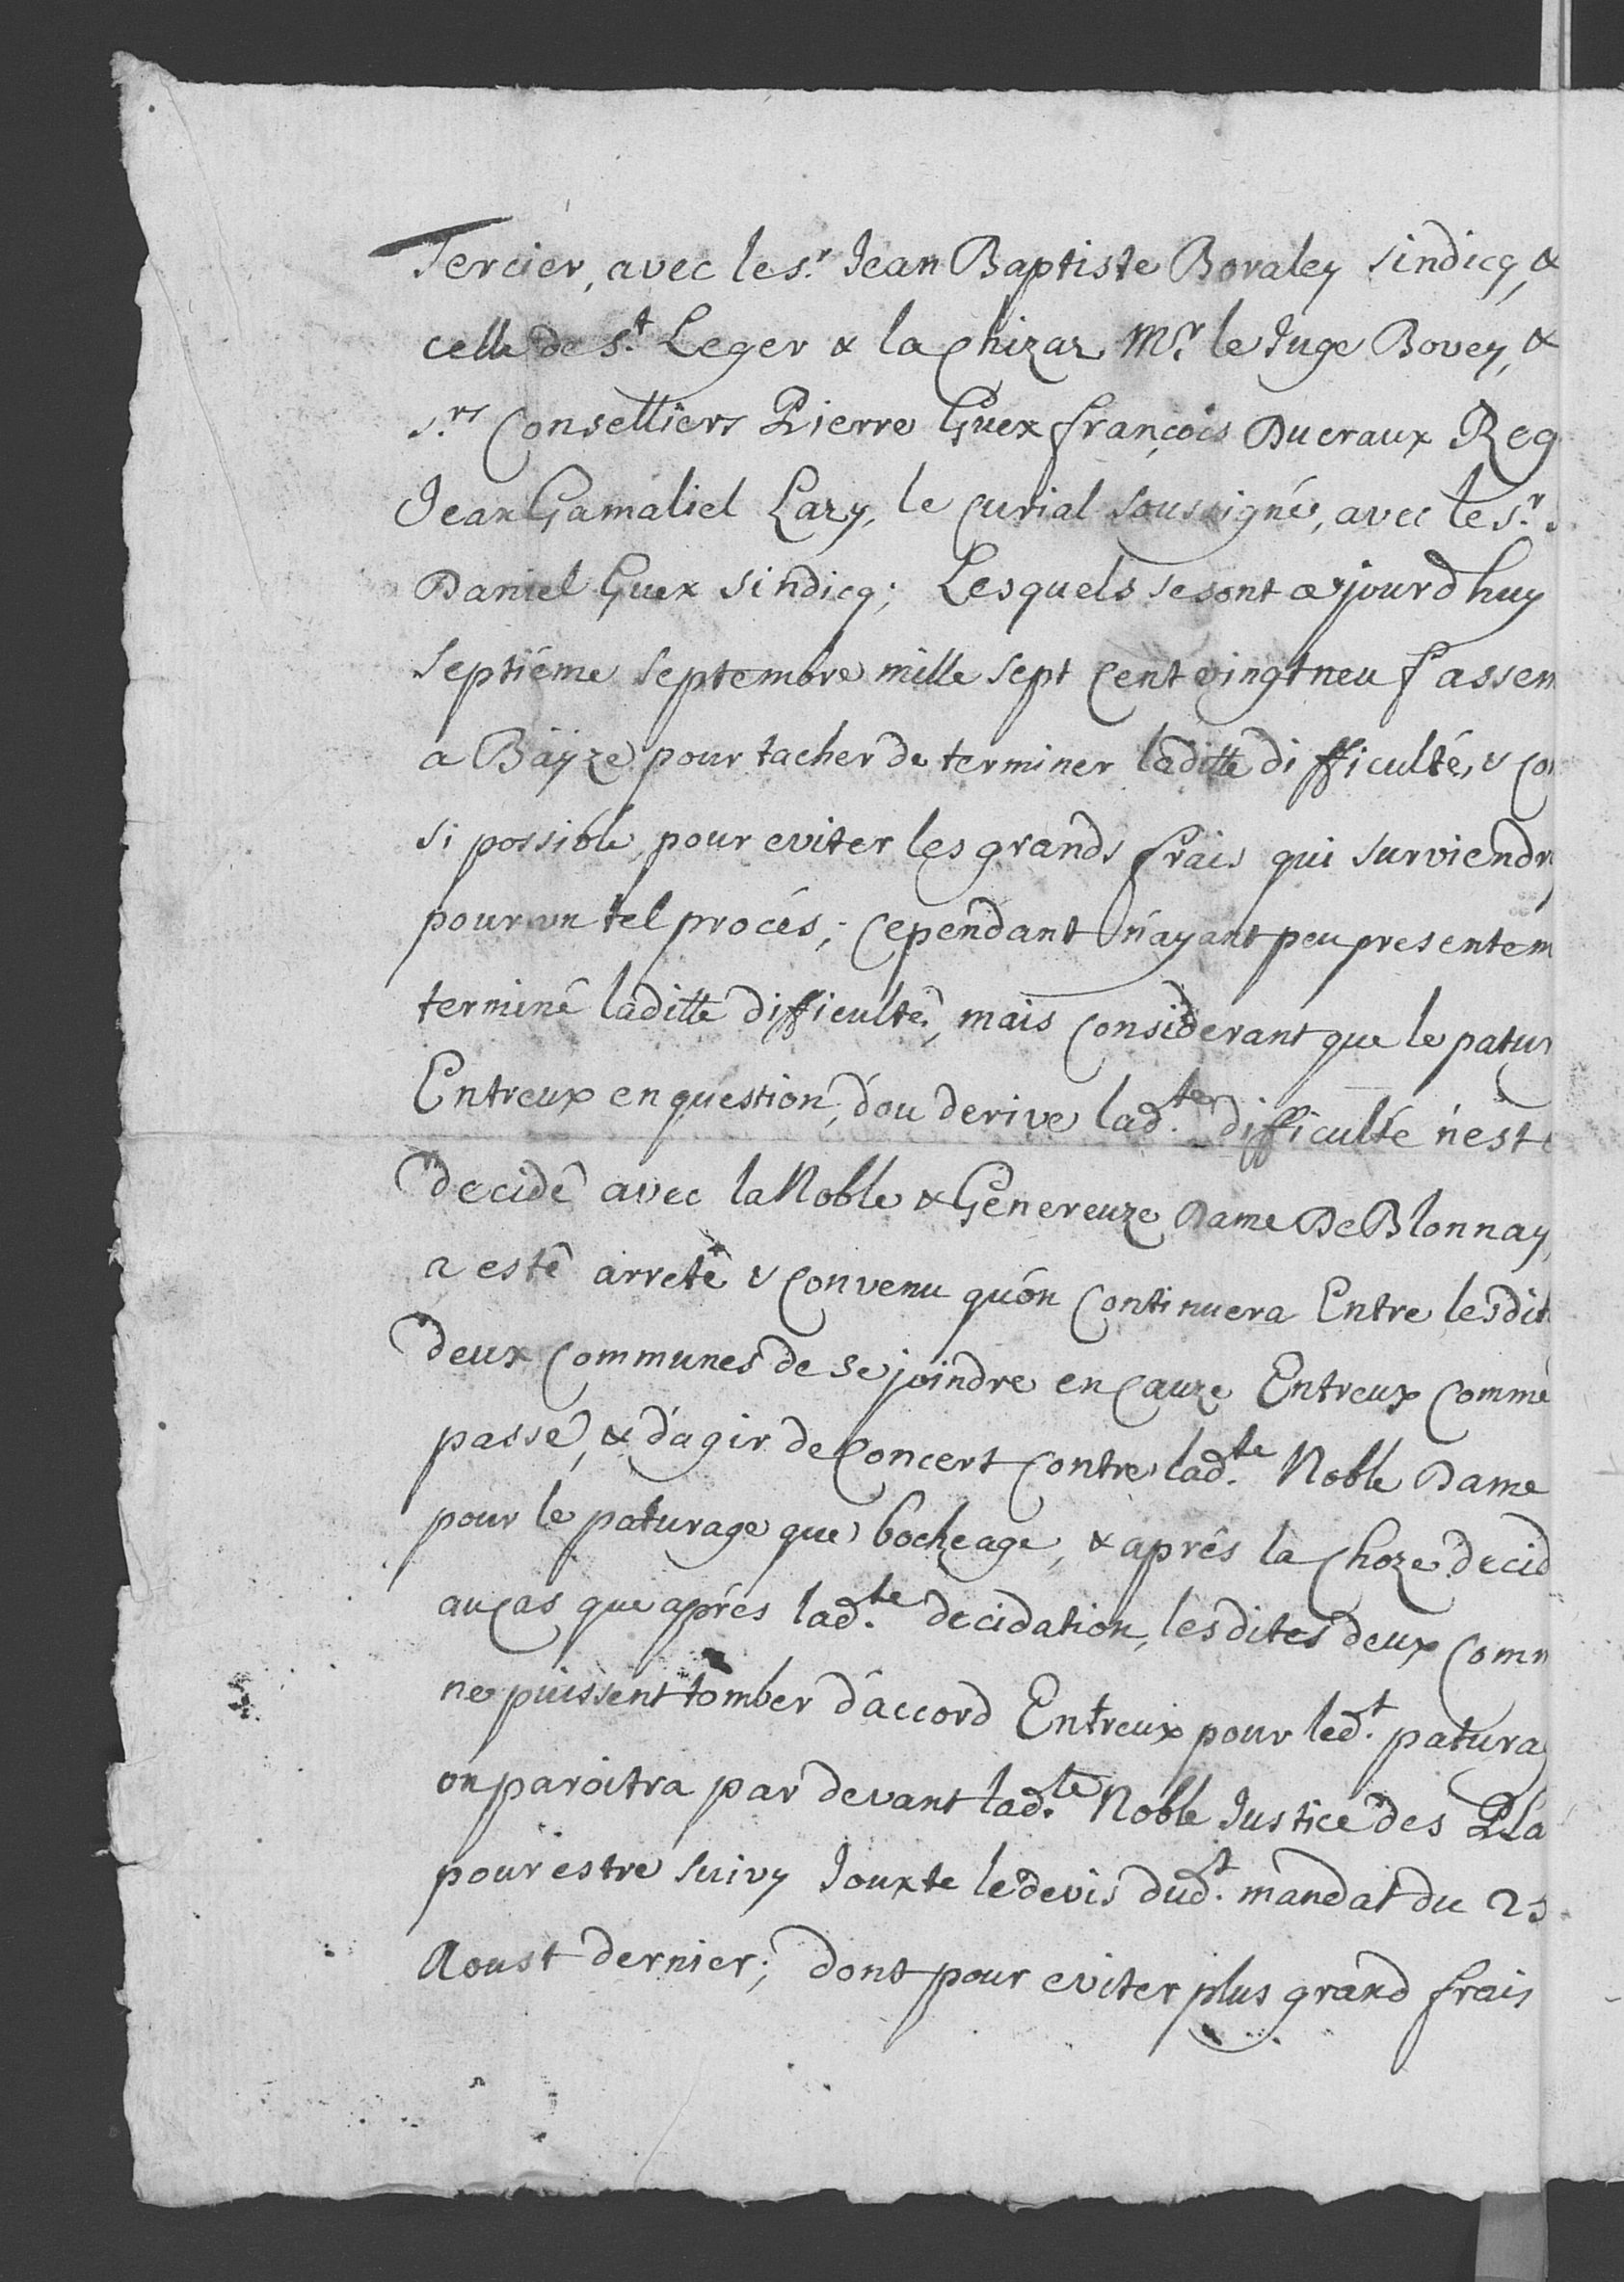 Tercier, avec le s.r Jean Baptiste Boraley sindicq, &
celle de s.t Leger & la Chizaz Mr. le Juge Bovey, &
s.rs Conselliers Pierre Guex françois Ducraux Reg
Jean Gamaliel Lazy, le Curial soussigné, avec le s.r
Daniel Guex sindicq; Lesquels se sont aujourdhuy
septiéme septembre mille sept Cent vingt neuf assem
a Bäyze pour tacher de terminer laditte difficulté, & co
si possible, pour eviter les grands frais qui surviendr
pour un tel procés; Cependant n'ayant peu presentem
terminé laditte difficulté, mais Considerant que le patur
Entreux en question, d'ou derive lad.te difficulté n'est
decidé avec la Noble & Genereuze Dame De Blonnay,
a esté arreté & Convenu qu'on Continuera Entre lesdit
deux Communes de se joindre en Cauze Entreux Comme
passé, & d'agir de Concert Contre lad.te Noble Dame
pour le paturage que bocheage, & aprés la Choze decid
au Cas que aprés lad.te decidation, lesdites deux Comm
ne puissent tomber d'accord Entreux pour led.t patura
on paroitra par devant lad.te Noble Justice des Pla
pour estre suivy Jouxte le devis dud.t mandat du 25
Aoust dernier; dont pour eviter plus grand frais